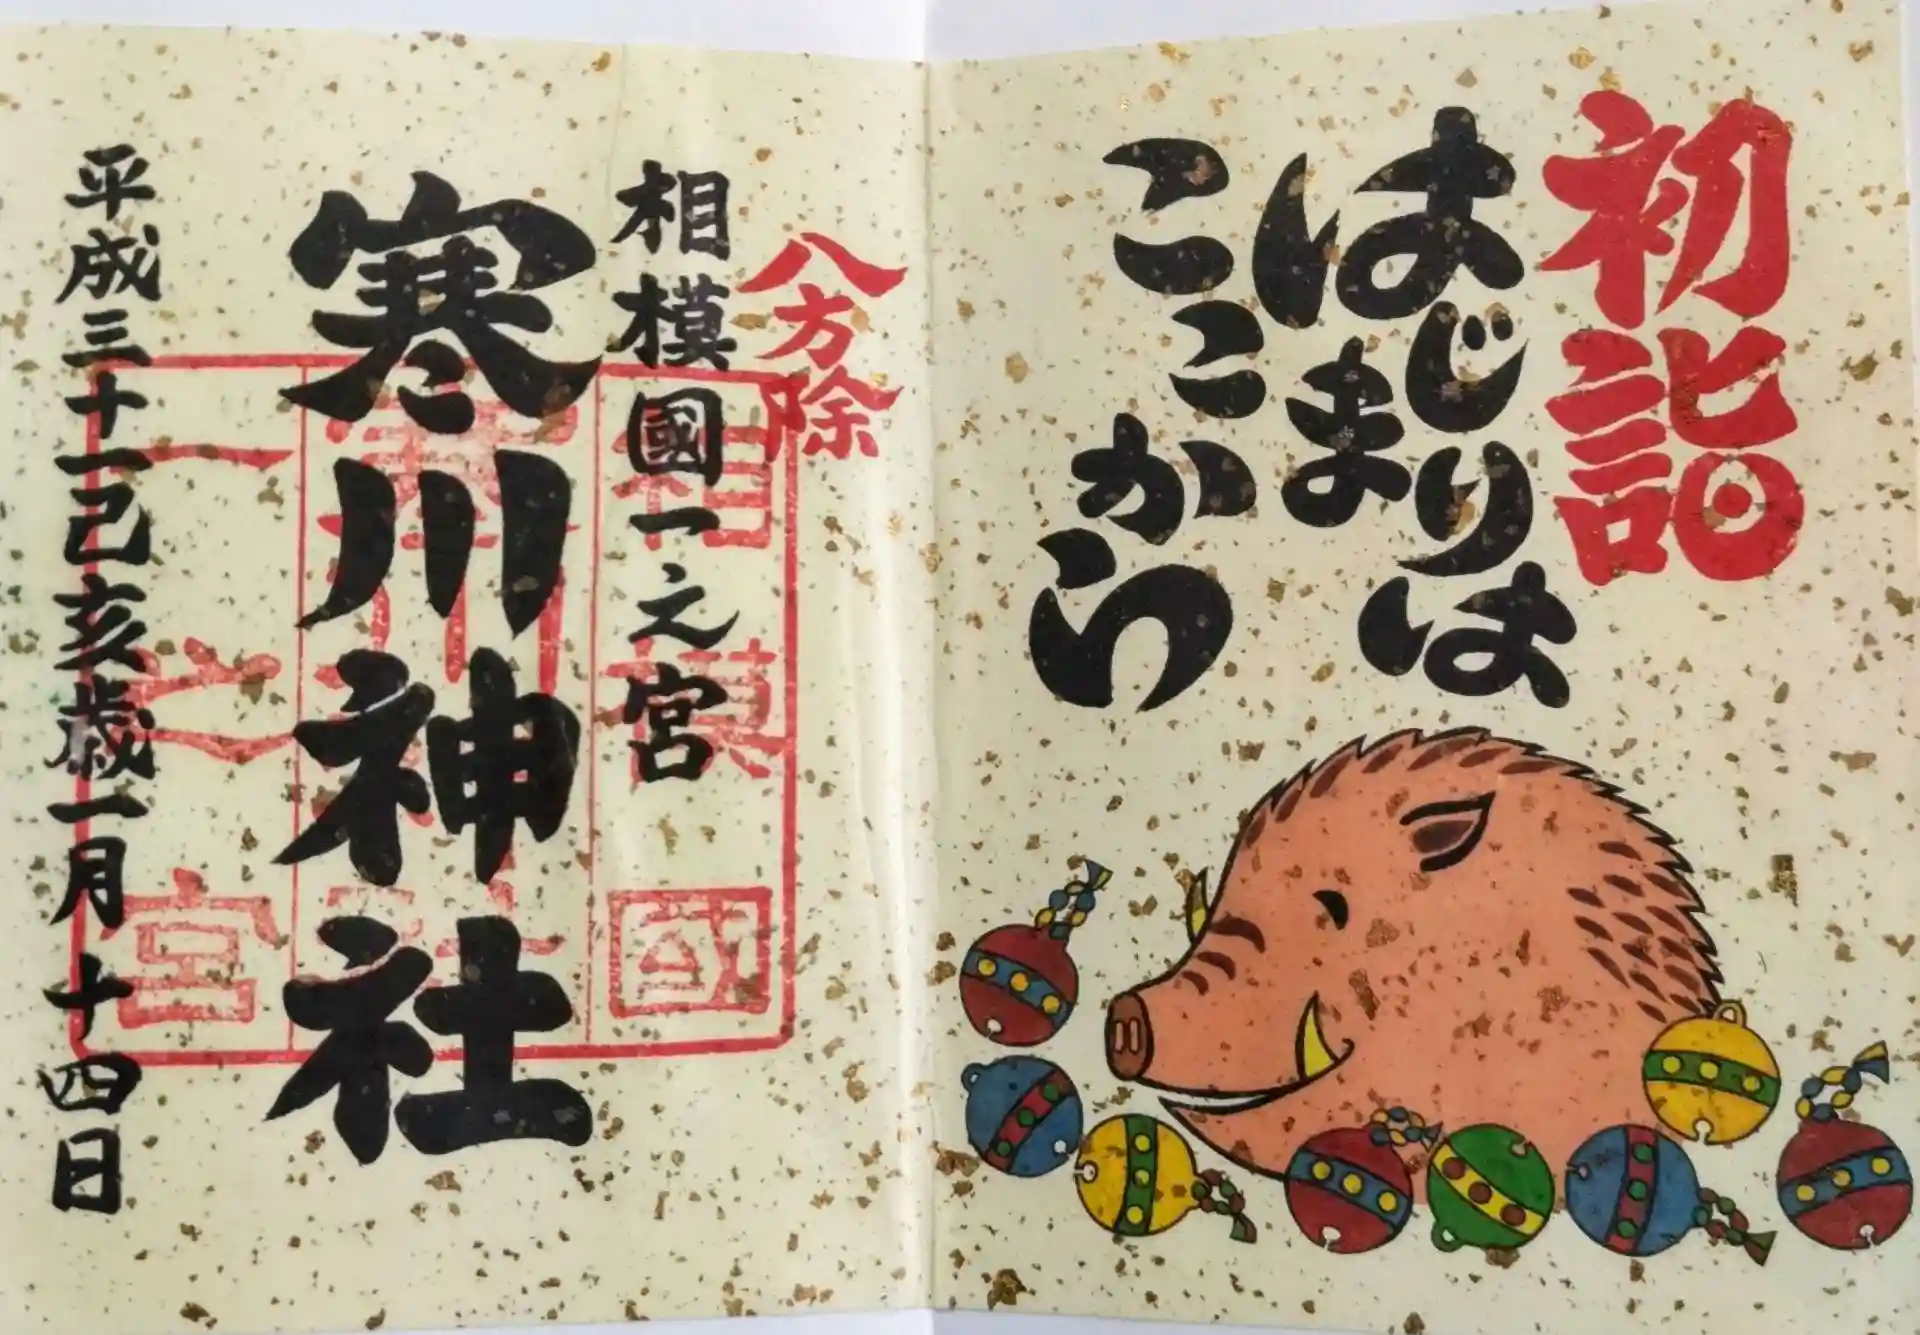 初詣
はじまりは
はじまりは
ここから
八方除
相模國一之宮
寒川神社
平成三十一己亥歳一月十四日
相模國
寒川神社
一之宮